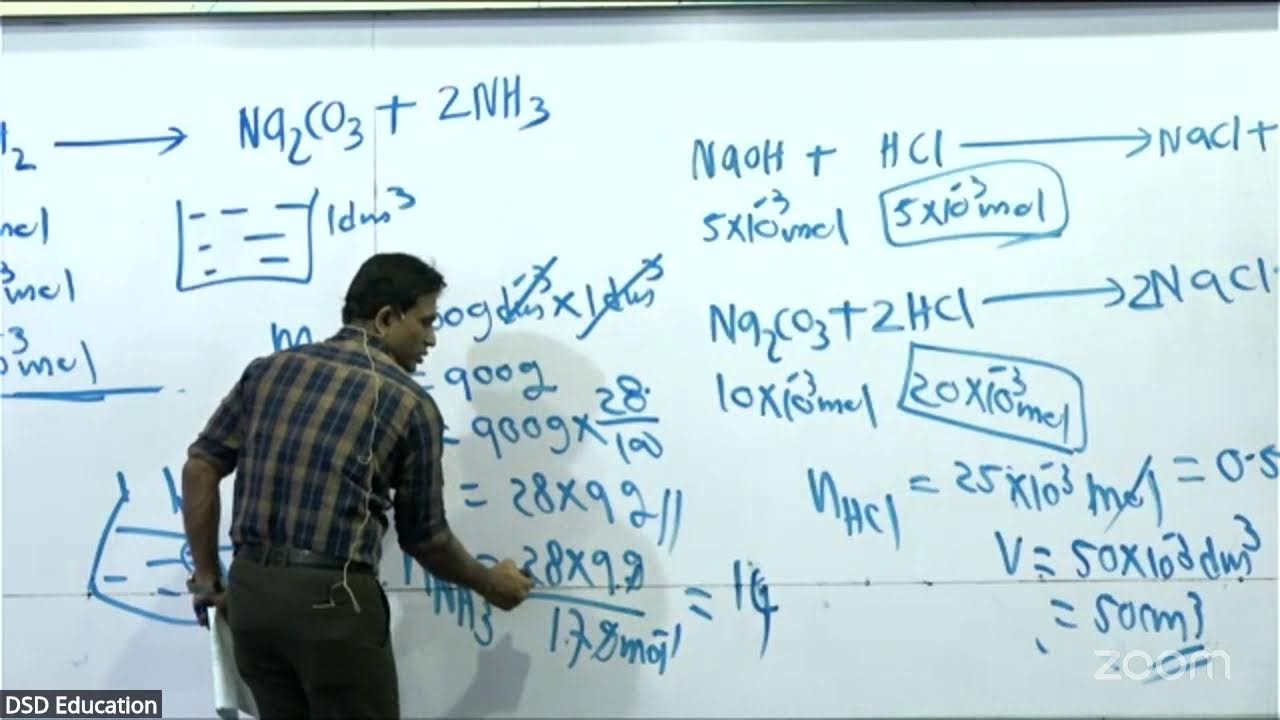 H₂ ⟶ Na₂CO₃ + 2NH₃
1dm³
mol
³mol
³mol
00g dm⁻³ × 1dm³
= 900g
= 900g × 28/100
= 28×9g //
NH₃ = 28×9g / 17gmol⁻¹ = 14
NaOH + HCl ⟶ NaCl +
5×10⁻³mol 5×10⁻³mol
Na₂CO₃ + 2HCl ⟶ 2NaCl
10×10⁻³mol 20×10⁻³mol
nHCl = 25×10⁻³ mol = 0.5
V = 50×10⁻³dm³
= 50cm³
zoom
DSD Education